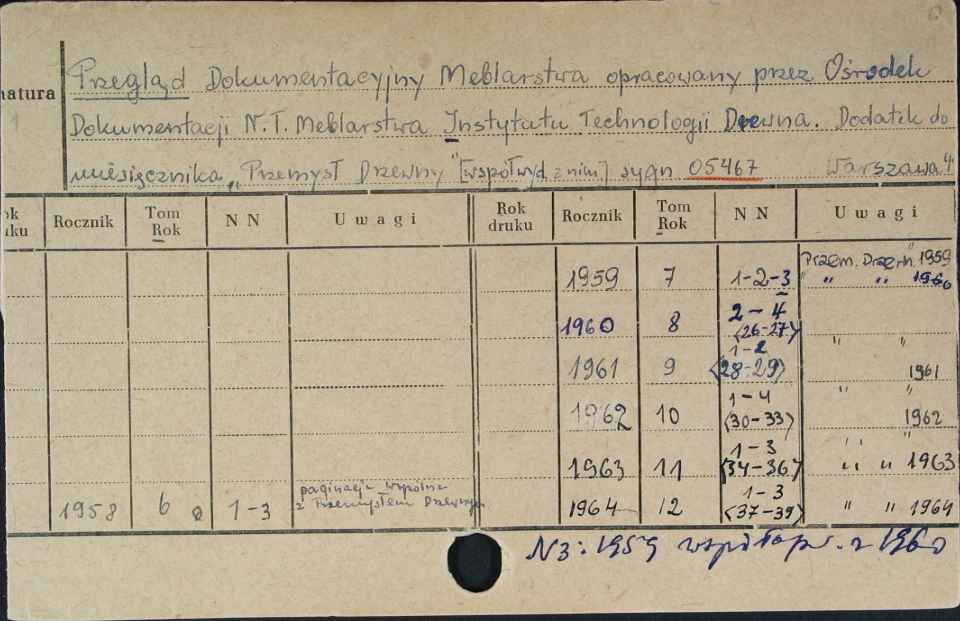 Przegląd Dokumentacyjny Meblarstwa opracowany przez Ośrodek
natura
Dokumentacji N.T. Meblarstwa Instytutu Technologii Drewna. Dodatek do
miesięcznika „Przemysł Drzewny" [współwyd. z nim] sygn 05467 Warszawa 4°
ok uku Rocznik Tom Rok NN Uwagi Rok druku Rocznik Tom Rok NN Uwagi
Przem. Drzewn. 1959
1959 7 1-2-3 " " " 1960
1960 8 2-4 (26-27)
1961 9 1-2 (28-29) " " 1961
1962 10 1-4 (30-33) " " 1962
1963 11 1-3 (34-36) " " 1963
1958 6 1-3 paginacja wspólna z Przemysłem Drzewnym 1964 12 1-3 (37-39) " " 1964
N3: 1959 współopr. z 1960